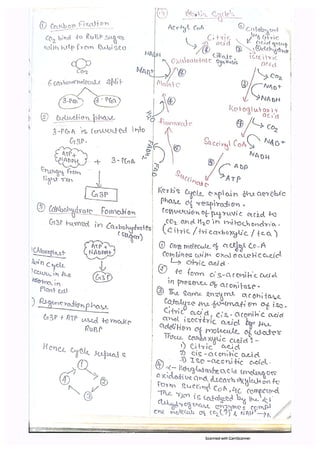 ① Carbon Fixation
CO2 bind to RUBP sugar
with help from Rubisco
CO2
6 carbon molecule split
3-PGA 3-PGA
② Reduction phase
3-PGA is converted into
G3P.
ATP+
NADPH
+ 3-PGA
Energy from
light rxn
G3P
③ Carbohydrate Formation
G3P turned in Carbohydrates
(sugar)
Chloroplast
ATP+
NADPH
Cycle
occurs in the
G3P
Plant cell
Regeneration phase
G3P + ATP used to make
RUBP
Hence cycle repeats
Krebs Cycle
Acetyl CoA
Citric
acid
Citrate
Synthase
Oxaloacetate
NADH
NAD+
Malate
H2O
Fumarate
FADH2
FAD
Succinate
ATP
ADP
Succinyl CoA
NADH
NAD+
CO2
Ketoglutarate
NADH
NAD+
CO2
Isocitric
acid
Krebs Cycle explain the aerobic
phase of respiration.
Conversion of pyruvic acid to
CO2 and H2O in mitochondria.
(Citric / tricarboxylic / TCA)
① One molecule of acetyl CoA
combines with oxaloacetic acid
↳ citric acid
② to form cis-aconitic acid
in presence of aconitase.
③ The same enzyme aconitase
Catalyse the formation of iso-
citric acid, cis-aconitic acid
and isocitric acid by the
addition of molecule of water
Three carboxylic acid :-
1) Citric acid
2) cis-aconitic acid
3) Iso-aconitic acid.
④ α-ketoglutarate undergoes
oxidative and decarboxylation to
form Succinyl CoA, 4C compound
The rxn is catalysed by the
dehydrogenase enzymes
one molecule of CO2
Scanned with CamScanner